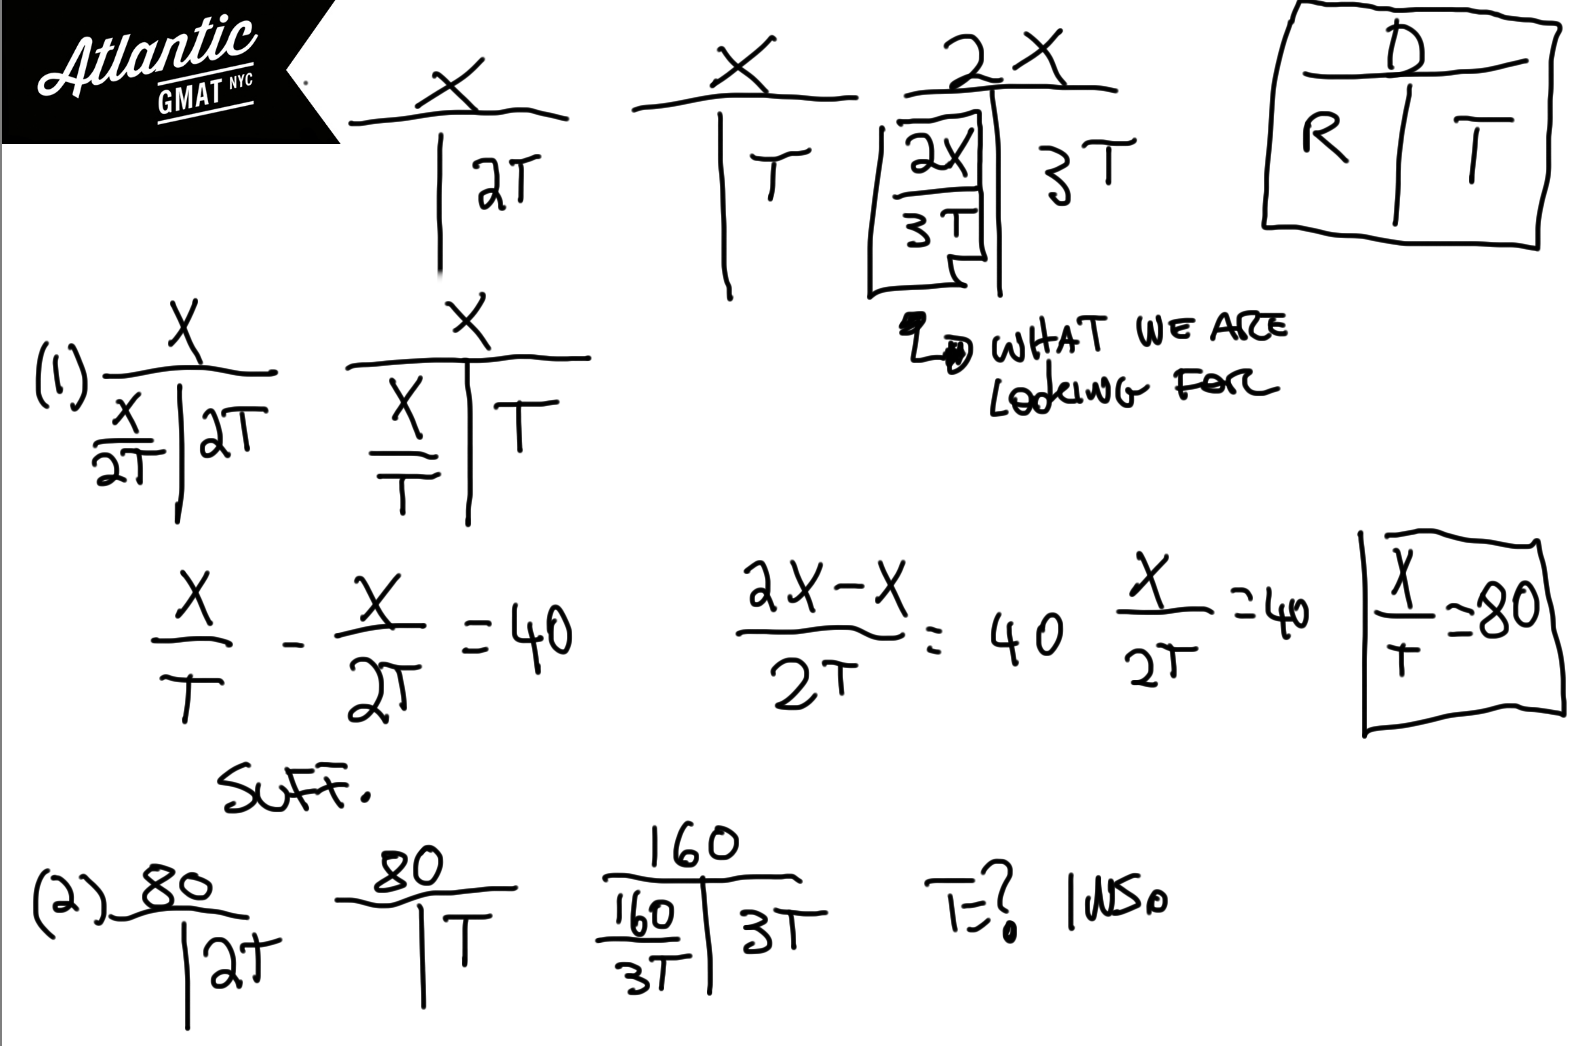 Atlantic
GMAT NYC
X
2T
X
T
2X
2X
3T
3T
D
R T
WHAT WE ARE
LOOKING FOR
(1) X
X
2T
2T
X
X
T
T
X/T - X/2T = 40
2X-X/2T = 40
X/2T = 40
X/T = 80
SUFF.
(2) 80
2T
80
T
160
160
3T
3T
T=? INS.